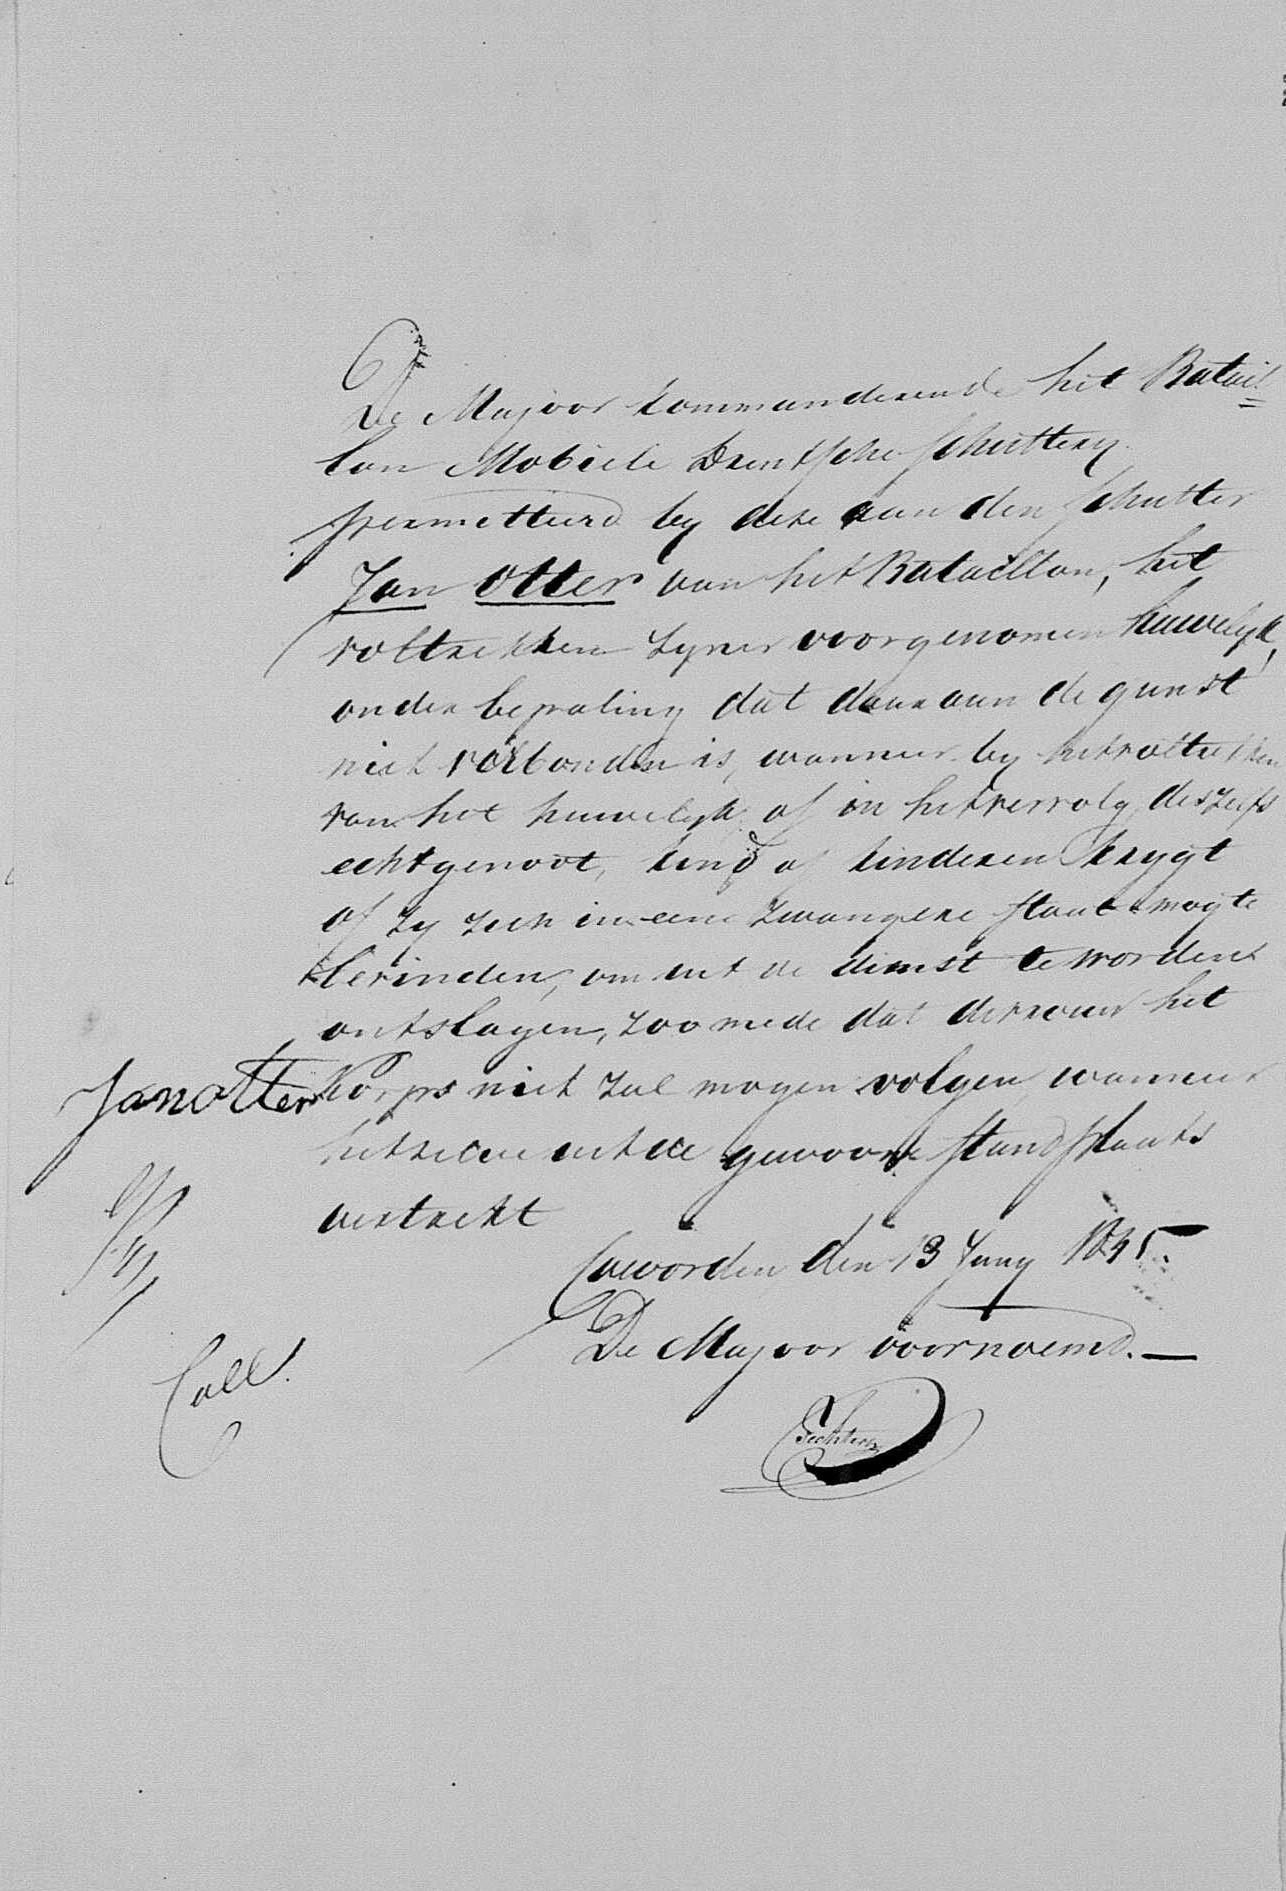 De Majoor kommanderende het Batail=
lon Mobiele Drentsche Schuttery
permetteerd by deze aan den Schutter
Jan Otter van het Bataillon, het
voltrekken zyner voorgenomen huwelyk,
onder bepaling dat daar aan de gunst
niet verbonden is, wanneer by het voltrekken
van het huwelyk of in het vervolg deszelfs
echtgenoot, kind of kinderen krygt
of zy zich in eene zwangere staat mogte
bevinden, om uit de dienst te worden
ontslagen, zoo mede dat de vrouw het
Jan otter
Korps niet zal mogen volgen wanneer
het zelve uit de gewoone Standplaats
vertrekt
Coevorden den 13 Juny 1845.
De Majoor voornoemd. —
Coll.